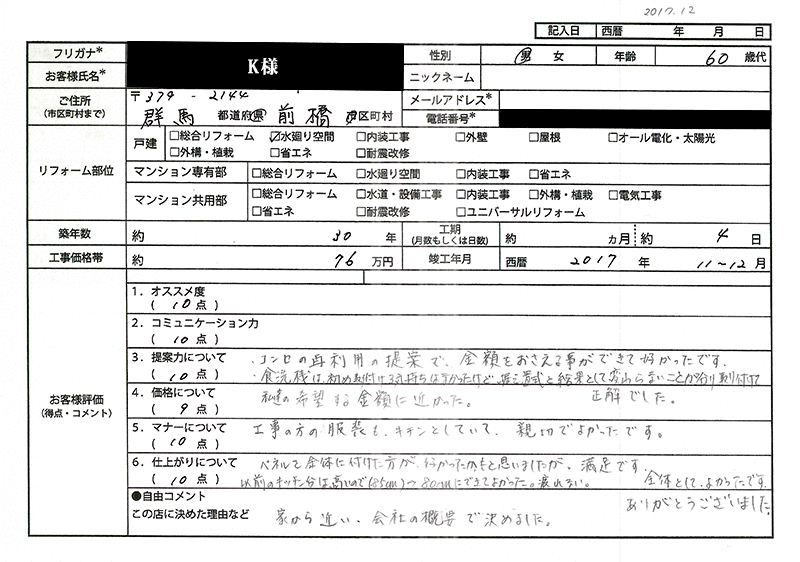 2017.12
記入日 西暦 年 月 日
フリガナ* 性別 男 女 年齢 60 歳代
お客様氏名* K様 ニックネーム
ご住所 (市区町村まで) 〒379-2144 メールアドレス*
群馬 都道府県 前橋 市区町村 電話番号*
リフォーム部位
戸建 □総合リフォーム ☑水廻り空間 □内装工事 □外壁 □屋根 □オール電化・太陽光
□外構・植栽 □省エネ □耐震改修
マンション専有部 □総合リフォーム □水廻り空間 □内装工事 □省エネ
マンション共用部 □総合リフォーム □水道・設備工事 □内装工事 □外構・植栽 □電気工事
□省エネ □耐震改修 □ユニバーサルリフォーム
築年数 約 30 年 工期 (月数もしくは日数) 約 ヵ月 約 4 日
工事価格帯 約 76 万円 竣工年月 西暦 2017 年 11~12 月
お客様評価 (得点・コメント)
1.オススメ度
( 10 点 )
2.コミュニケーション力
( 10 点 )
3.提案力について ・コンロの再利用の提案で、金額をおさえる事ができて好かったです。
( 10 点 ) ・食洗機は初め取付ける気持ちはなかったけど 結果として変わらないことが分り取付けて
正解でした。
4.価格について 私達の希望する金額に近かった。
( 9 点 )
5.マナーについて 工事の方の服装も、キチンとしていて、親切でよかったです。
( 10 点 )
6.仕上がりについて パネルを全体に付けた方が、行かったかもと思いましたが、満足です。
( 10 点 ) 以前のキッチン台は高いので(85cm)→80cmにできてよかった。疲れない。
全体として、よかったです。
ありがとうございました。
●自由コメント
この店に決めた理由など 家から近い、会社の概要で決めました。